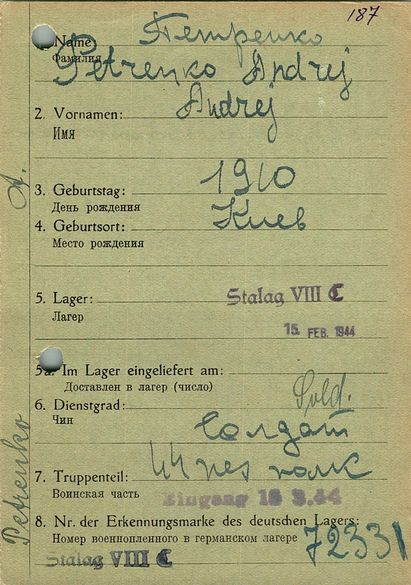 187
1. Name: Петренко
Фамилия
Petrenko Andrej
2. Vornamen: Andrej
Имя
3. Geburtstag: 1910
День рождения
4. Geburtsort: Киев
Место рождения
5. Lager: Stalag VIII C
Лагер
15. FEB. 1944
5a. Im Lager eingeliefert am:
Доставлен в лагер (число)
Sold.
6. Dienstgrad:
Чин
Солдат
7. Truppenteil: 44 рез полк
Воинская часть
Eingang 18 3.44
8. Nr. der Erkennungsmarke des deutschen Lagers:
Номер военнопленного в германском лагере 72331
Stalag VIII C
Petrenko A.